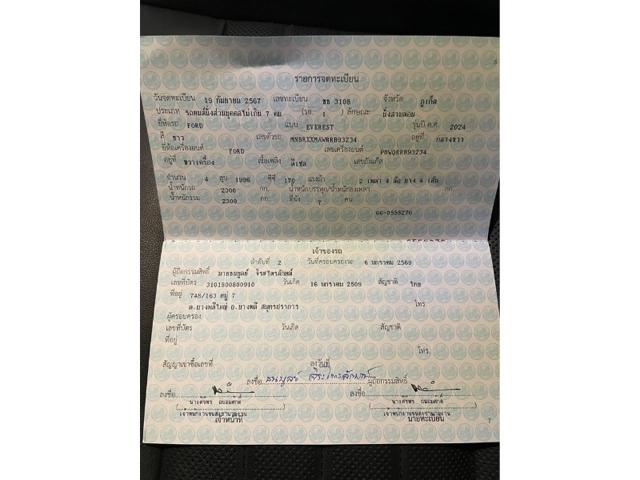 รายการจดทะเบียน
วันจดทะเบียน 19 กันยายน 2567 เลขทะเบียน ขธ 3108 จังหวัด ภูเก็ต
ประเภท รถยนต์นั่งส่วนบุคคลไม่เกิน 7 คน (รย. 1 ) ลักษณะ นั่งสามตอน
ยี่ห้อรถ FORD แบบ EVEREST รุ่นปี ค.ศ. 2024
สี ขาว เลขตัวรถ อยู่ที่ กลางขวา
ยี่ห้อเครื่องยนต์ FORD เลขเครื่องยนต์ P8WQRRB93234
อยู่ที่ ขวาเครื่อง เชื้อเพลิง ดีเซล เลขถังแก๊ส
จำนวน 4 สูบ 1996 ซีซี 170 แรงม้า 2 เพลา 4 ล้อ ยาง 4 เส้น
น้ำหนักรถ 2300 กก. น้ำหนักบรรทุก/น้ำหนักลงเพลา กก.
น้ำหนักรวม 2300 กก. ที่นั่ง 7 คน
GG-0555270
เจ้าของรถ
ลำดับที่ 2 วันที่ครอบครองรถ 6 มกราคม 2569
ผู้ถือกรรมสิทธิ์
เลขที่บัตร 3101900800910 วันเกิด 16 มกราคม 2509 สัญชาติ ไทย
ที่อยู่ 748/163 หมู่ 7
ต.บางพลีใหญ่ อ.บางพลี สมุทรปราการ โทร
ผู้ครอบครอง
เลขที่บัตร วันเกิด สัญชาติ
ที่อยู่
โทร.
สัญญาเช่าซื้อเลขที่ ลงวันที่
ลงชื่อ ผู้ถือกรรมสิทธิ์
ลงชื่อ ลงชื่อ
เจ้าหน้าที่ นายทะเบียน
7